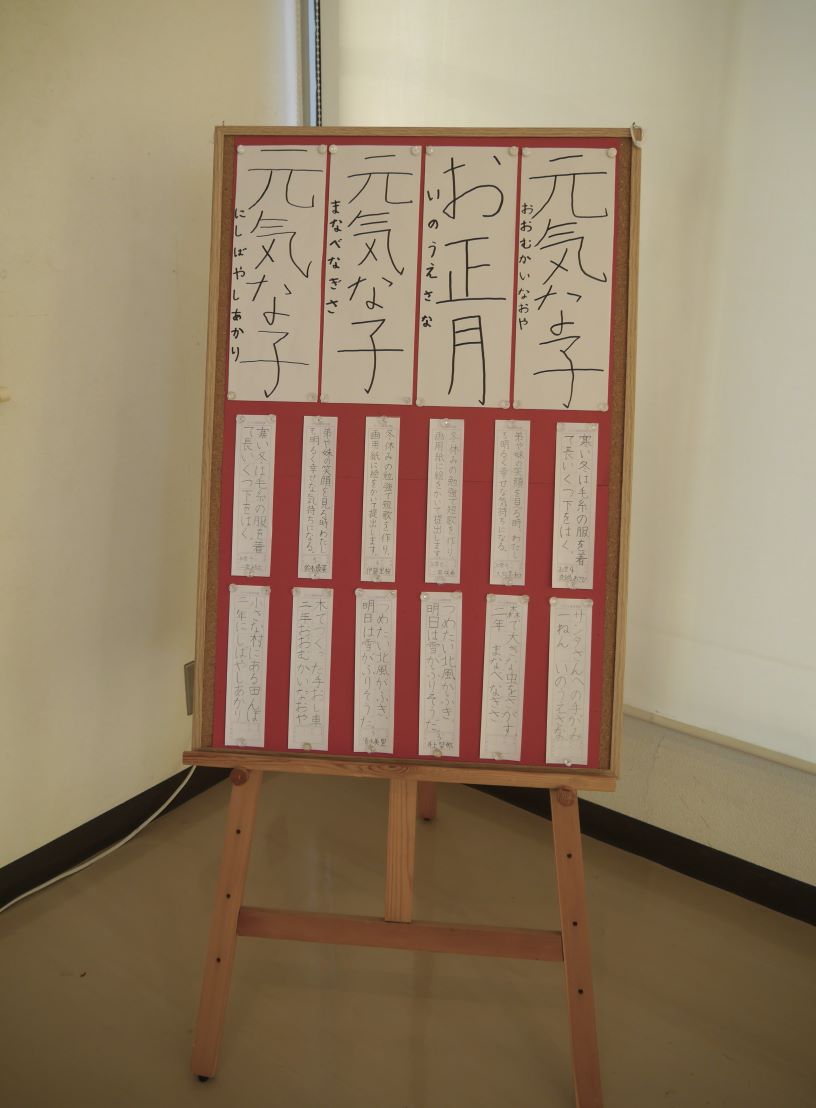 元気な子
おおむかいなおや
お正月
いのうえさな
元気な子
まなべなぎさ
元気な子
にしばやしあかり
寒い冬は毛糸の服を着
て長いくつ下をはく。
弟や妹の笑顔を見る時わたし
も明るく幸せな気持ちになる。
冬休みの勉強で短歌を作り、
画用紙に絵をかいて提出します。
冬休みの勉強で短歌を作り、
画用紙に絵をかいて提出します。
弟や妹の笑顔を見る時わたし
も明るく幸せな気持ちになる。
寒い冬は毛糸の服を着
て長いくつ下をはく。
サンタさんへの手がみ
一ねん いのうえさな
森で大きな虫をさがす
二年 まなべなぎさ
つめたい北風がふき
明日は雪がふりそうだ。
つめたい北風がふき
明日は雪がふりそうだ。
木でつくった手おし車
二年おおむかいなおや
小さな村にある田んぼ
二年にしばやしあかり